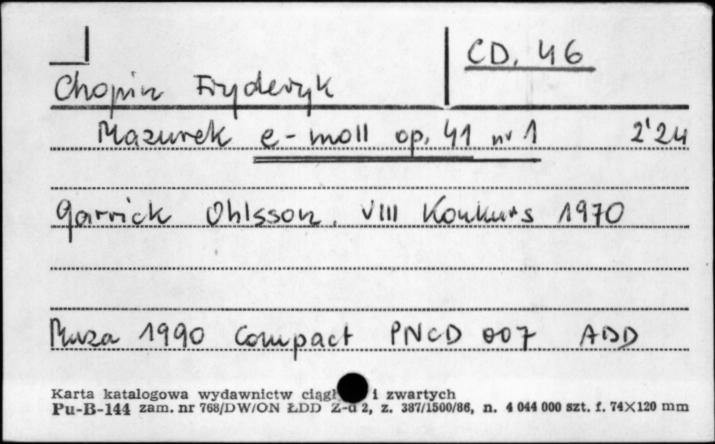 CD. 46
Chopin Fryderyk
Mazurek e-moll op. 41 nr 1 2'24
Garrick Ohlsson. VIII Konkurs 1970
Muza 1990 Compact PNCD 007 ADD
Karta katalogowa wydawnictw i zwartych
Pu-B-144 zam. nr 768/DW/ON ŁDD 2, z. 387/1500/86, n. 4 044 000 szt. f. 74×120 mm